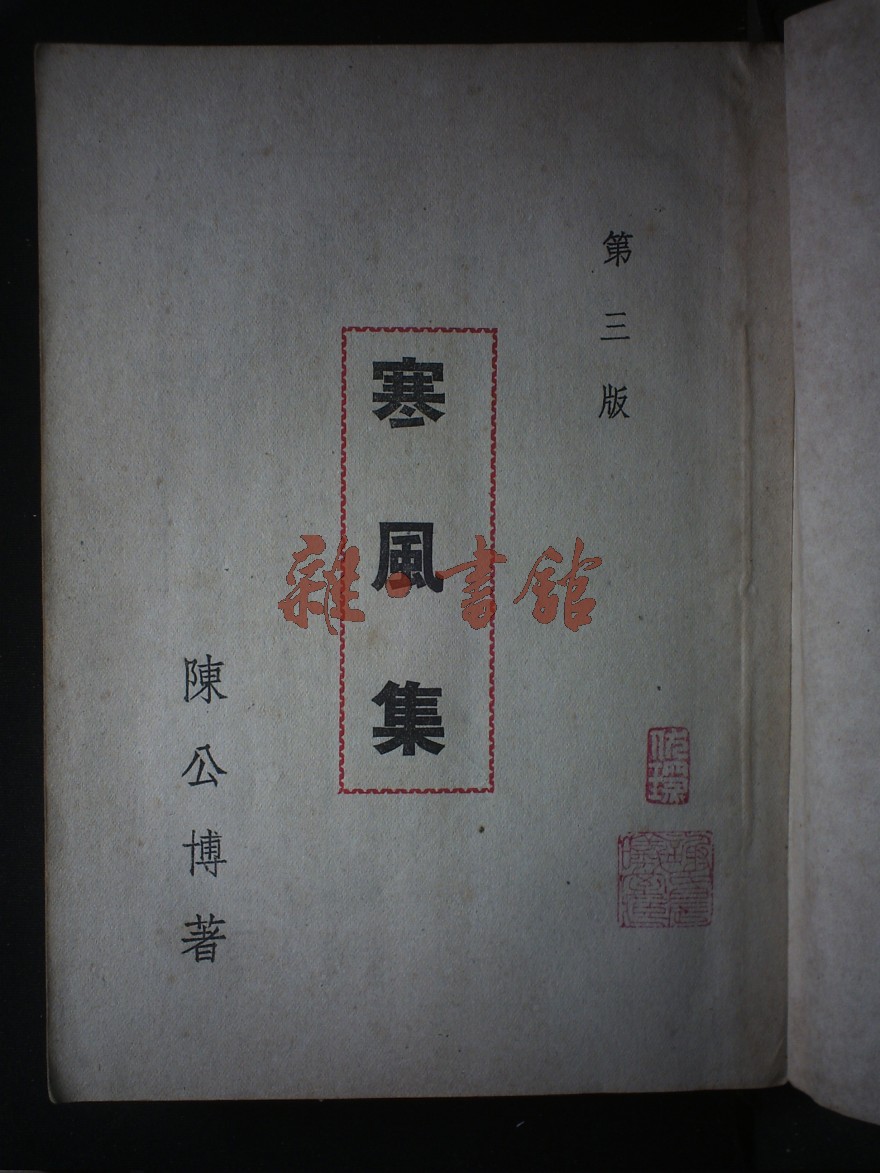 第三版
寒風集
陳公博著
雜·書館